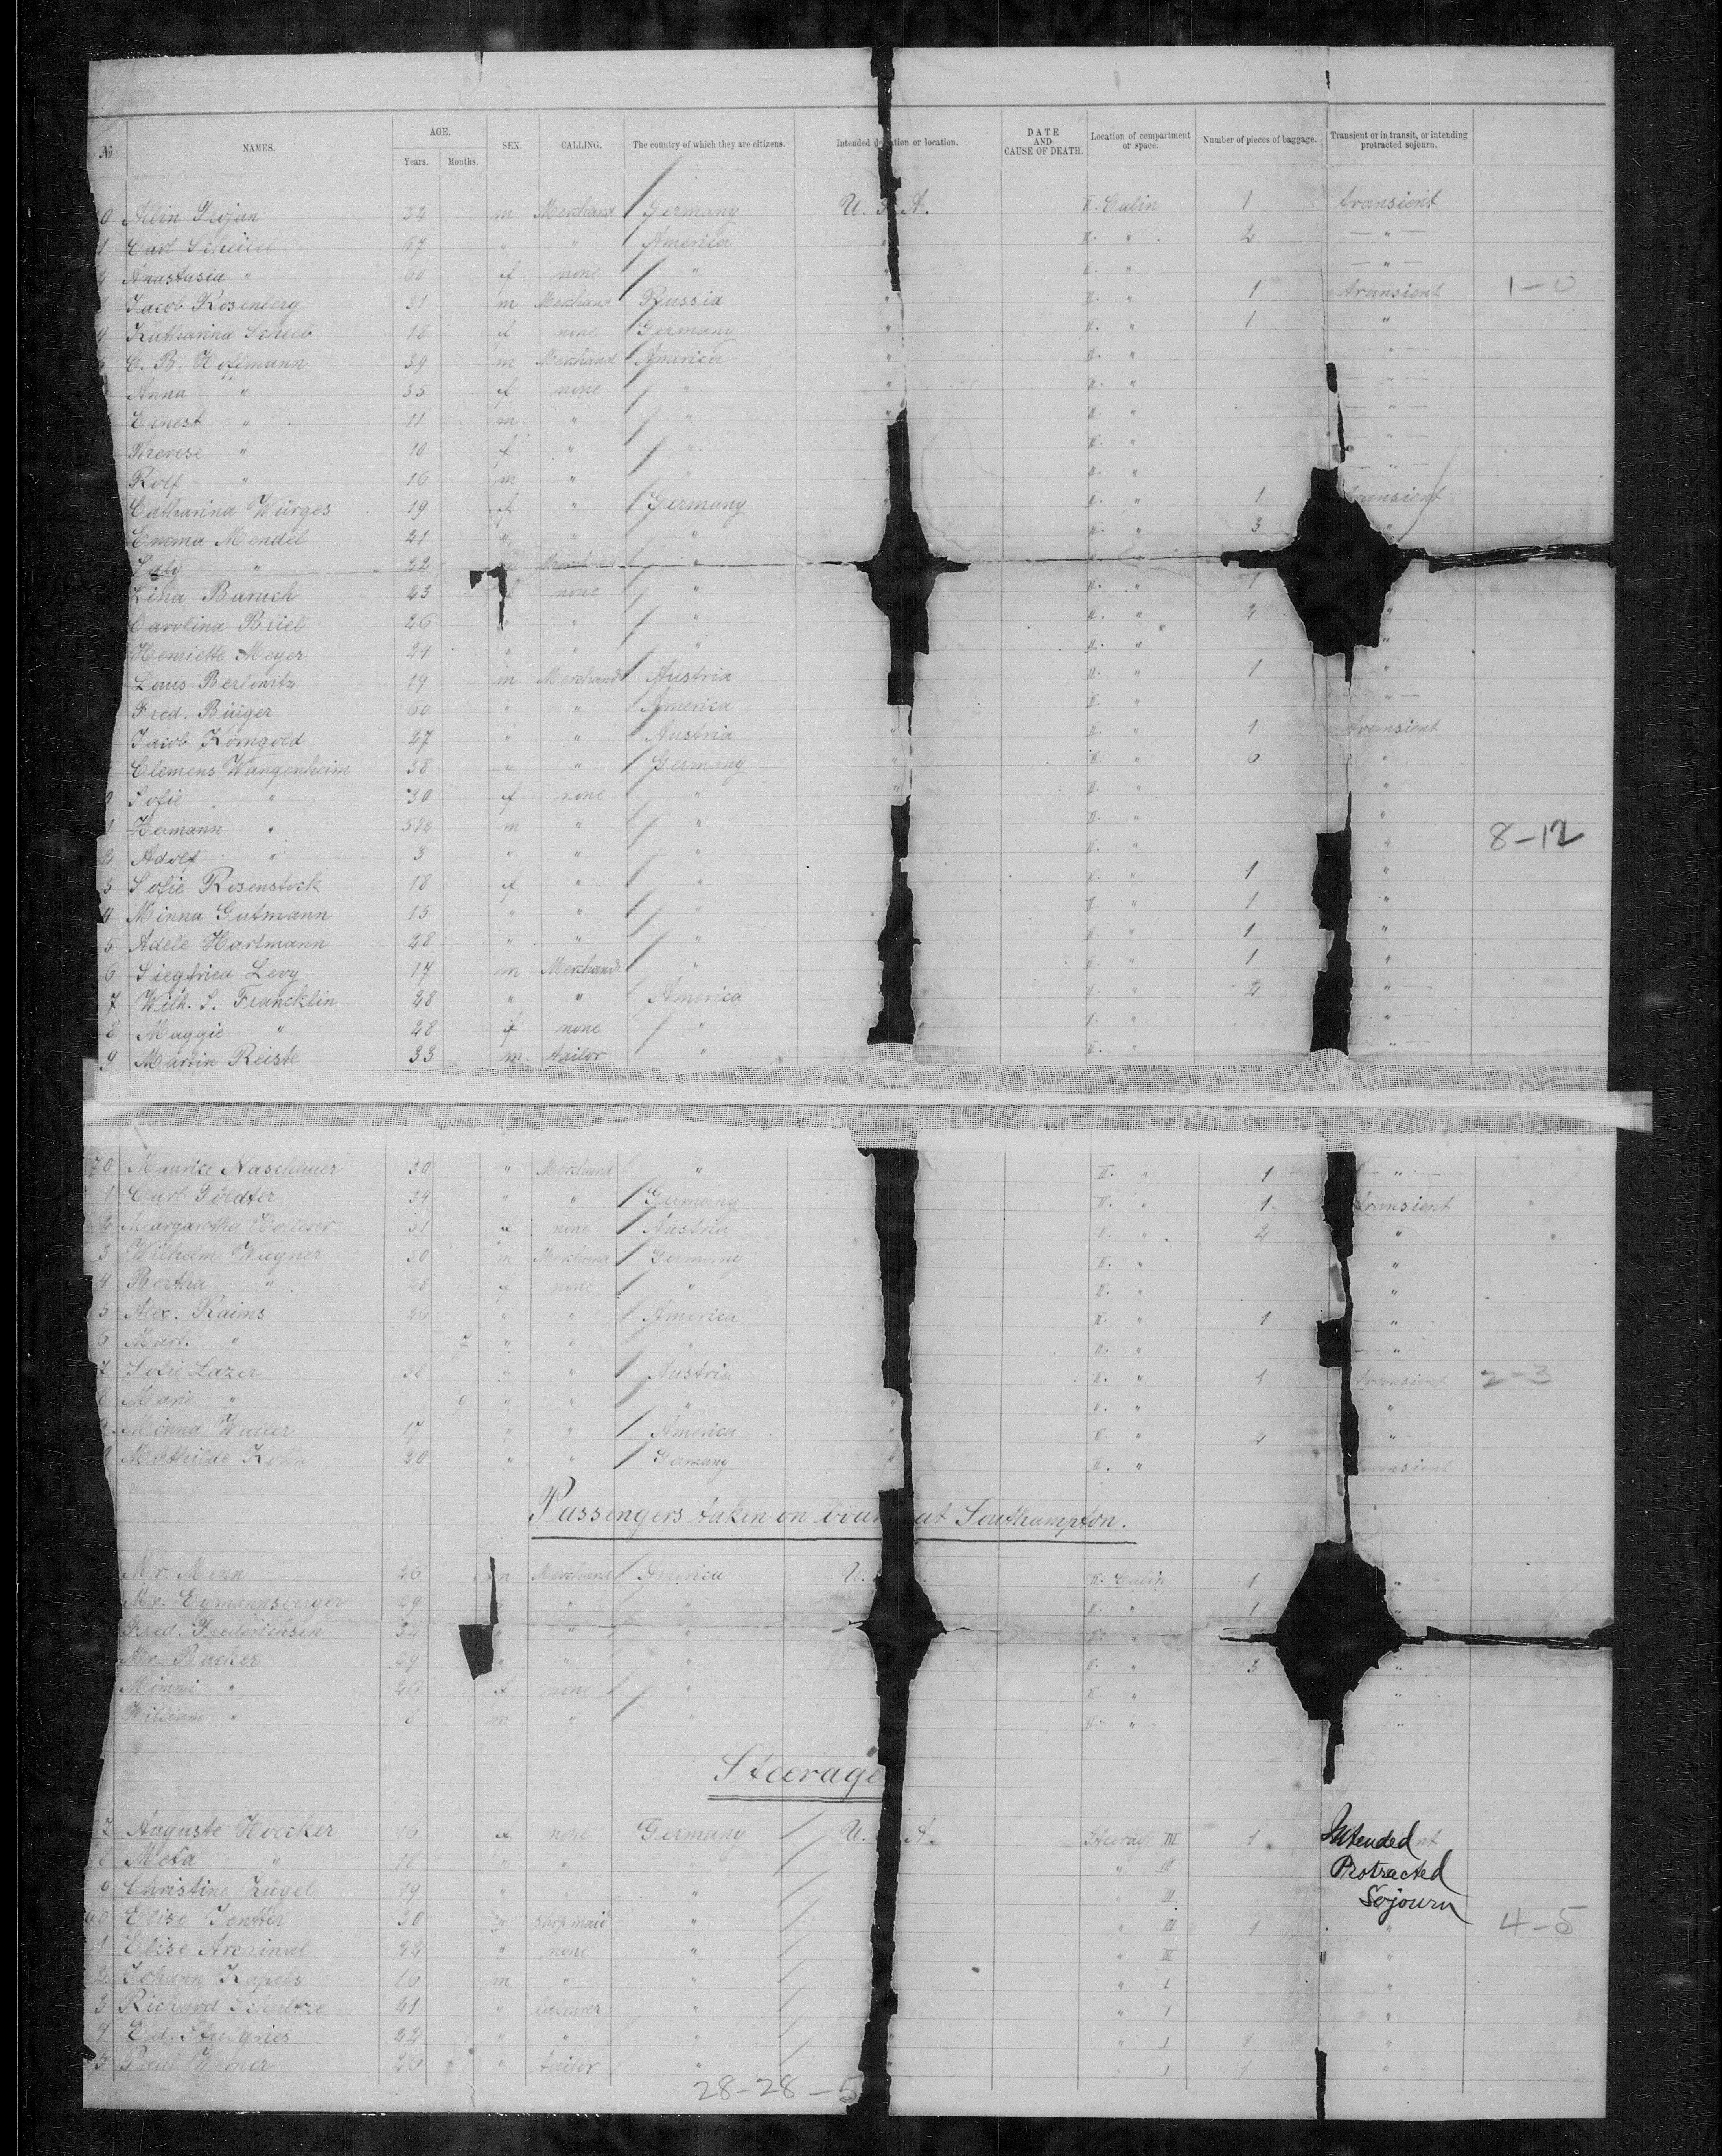 № NAMES. AGE. Years. Months. SEX. CALLING. The country of which they are citizens. Intended de ation or location. DATE AND CAUSE OF DEATH. Location of compartment or space. Number of pieces of baggage. Transient or in transit, or intending protracted sojourn.
0 Albin Trojan 32 m Merchand Germany U. S. A. II. Cabin 1 transient
1 Carl Scheidel 67 " " America " II. " 2 — " —
2 Anastasia " 60 f none " " II. " — " —
3 Jacob Rosenberg 31 m Merchand Russia " II. " 1 transient 1-0
4 Katharina Scheeb 18 f none Germany " II. " 1 "
5 C. B. Hoffmann 39 m Merchand America " II. " — " —
Anna " 35 f none " " II. " — " —
Ernest " 11 m " " " II. " — " —
Therese " 10 f " " II. " — " —
Rolf " 16 m " " II. " — " —
Catharina Würges 19 f " Germany II. " 1 transient
Emma Mendel 21 " " " II. " 3 "
Saly " 22 m Merchand " II. "
Lina Baruch 23 f none " II. " 1
Carolina Brüel 26 " " " II. " 2 "
Henriette Meyer 24 " " " II. " "
Louis Berlowitz 19 m Merchand Austria II. " 1 "
Fred. Bürger 60 " " America II. " — " —
Jacob Korngold 27 " " Austria " II. " 1 transient
Clemens Wangenheim 38 " " Germany " II. " 6 "
0 Sofie " 30 f none " " II. " "
1 Hermann " 5 1/2 m " " II. " "
2 Adolf " 3 " " " II. " " 8-12
3 Sofie Rosenstock 18 f " " II. " 1 "
4 Minna Gutmann 15 " " " II. " 1 "
5 Adele Hartmann 28 " " " II. " 1 "
6 Siegfried Levy 17 m Merchand " II. " 1 "
7 Wilh. S. Francklin 28 " " America II. " 2 — " —
8 Maggie " 28 f none " II. " — " —
9 Martin Reiste 33 m. tailor " II. " — " —
70 Maurice Naschauer 30 " Merchand " II. " 1 — " —
1 Carl 34 " " Germany II. " 1 transient
2 Margaretha 31 f none Austria II. " 2 "
3 Wilhelm Wagner 30 m Merchand Germany II. " "
4 Bertha " 28 f none " II. " "
5 Alex. Raims 26 " " America II. " 1 — " —
6 Mart. " 7 " " " II. " — " —
7 Sofie Lazer 38 " " Austria II. " 1 transient 2-3
8 Marie " 9 " " " " II. " "
9 Minna Wuller 17 " " America " II. " 2 — " —
Mathilde Kohn 20 " " Germany " II. " transient
Passengers taken on board at Southampton.
Mr. Menn 26 m Merchand America U. II. Cabin 1 — " —
Mr. Eymannsberger 29 " " " II. " 1 — " —
Fred. Frederichsen 32 " " " II. " "
Mr. Backer 29 " " " II. " 3 — " —
Mimmi " 26 f none " II. " "
William " 8 m " " II. " "
Steerage
7 Auguste Hoecker 16 f none Germany U. A. Steerage III 1 Intended
8 Meta " 18 " " " " III Protracted
9 Christine Zügel 19 " " " " III Sojourn
0 Elise 30 " shop maid " " III 1 " 4-5
1 Elise Archinal 22 " none " " III "
2 Johann Kapels 16 m " " " I "
3 Richard Schultze 21 " labourer " " I "
4 Ed. 22 " " " " " I 1 "
5 Paul Weiner 26 " tailor " " I 1 "
28-28-5